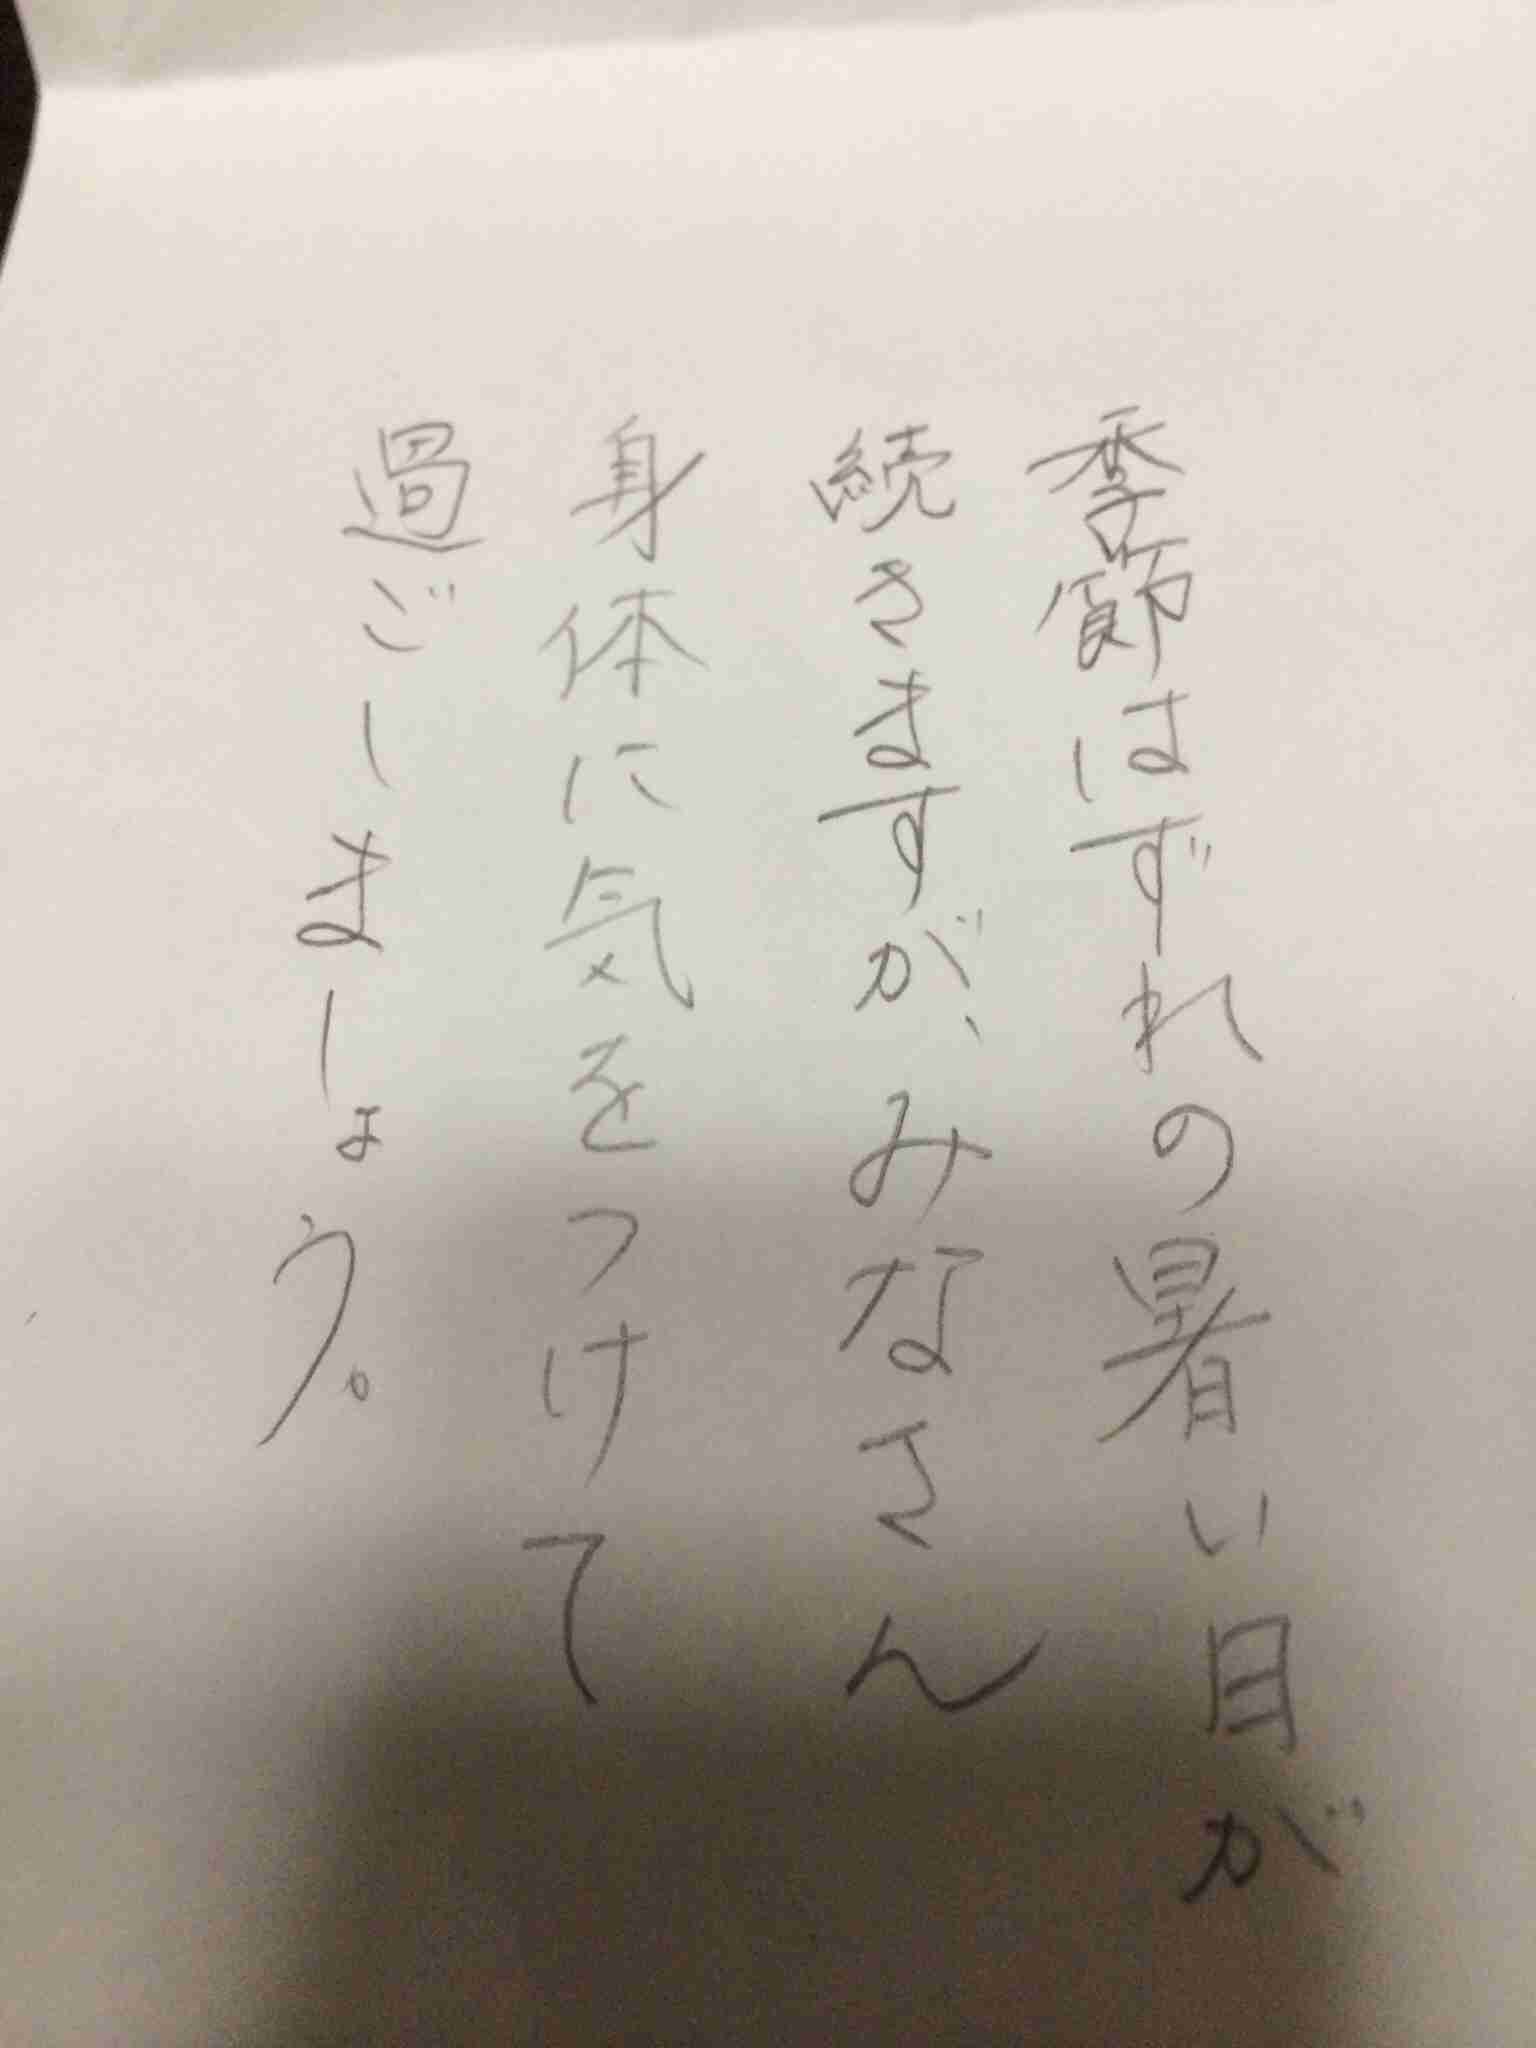 季節はずれの暑い日が
続きますが、みなさん
身体に気をつけて
過ごしましょう。